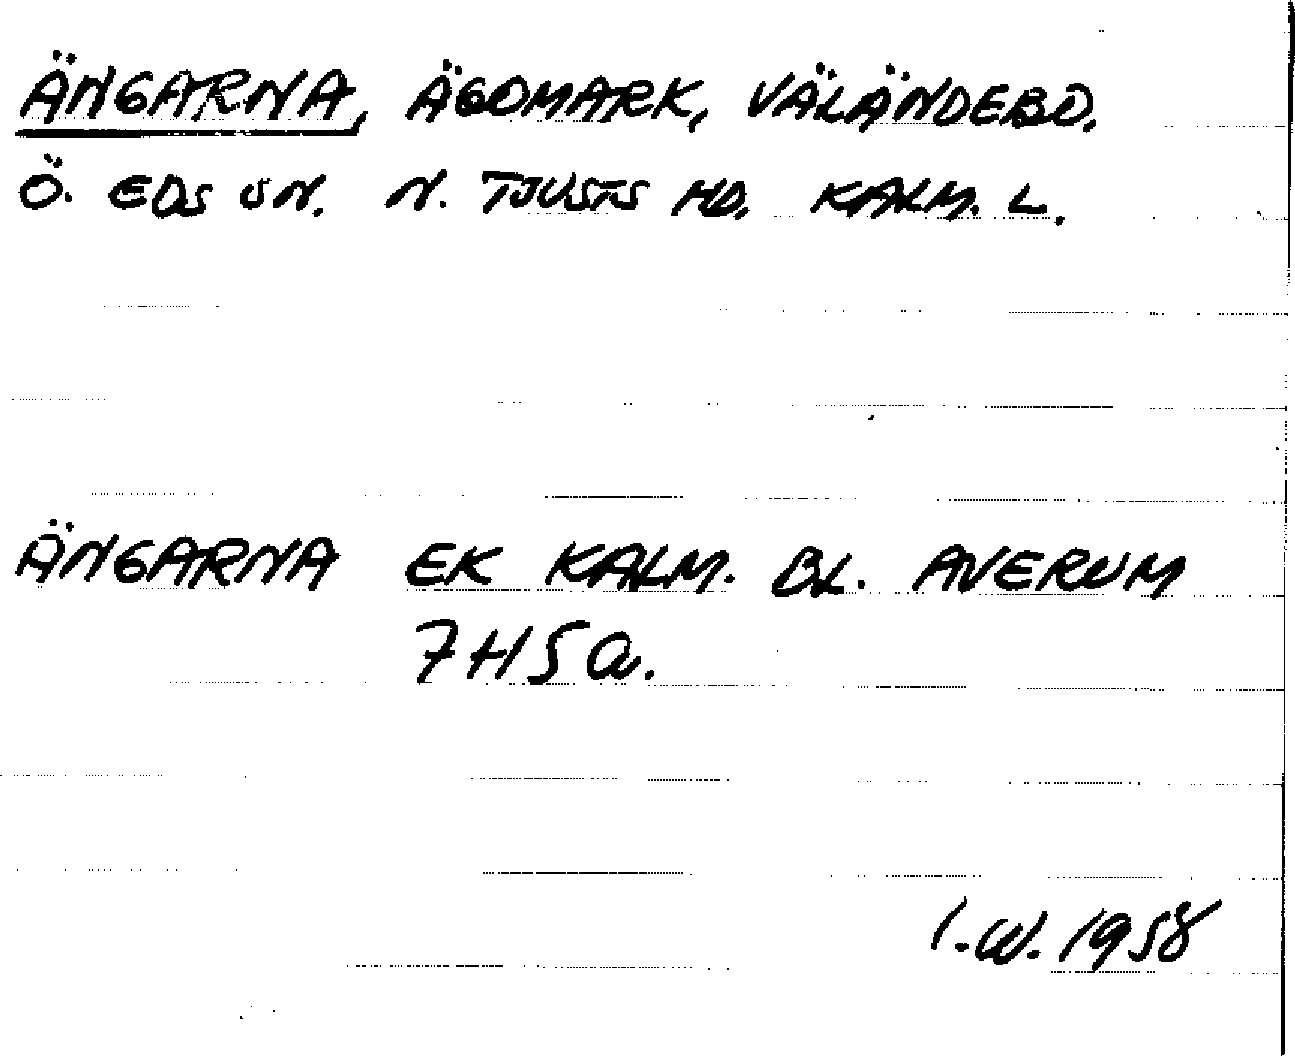 ÄNGARNA, ÄGOMARK, VÄLÄNDEBO.
Ö. EDS SN. N. TJUSTS HD. KALM. L.
ÄNGARNA EK KALM. BL. AVERUM
7H5a.
I.W. 1958